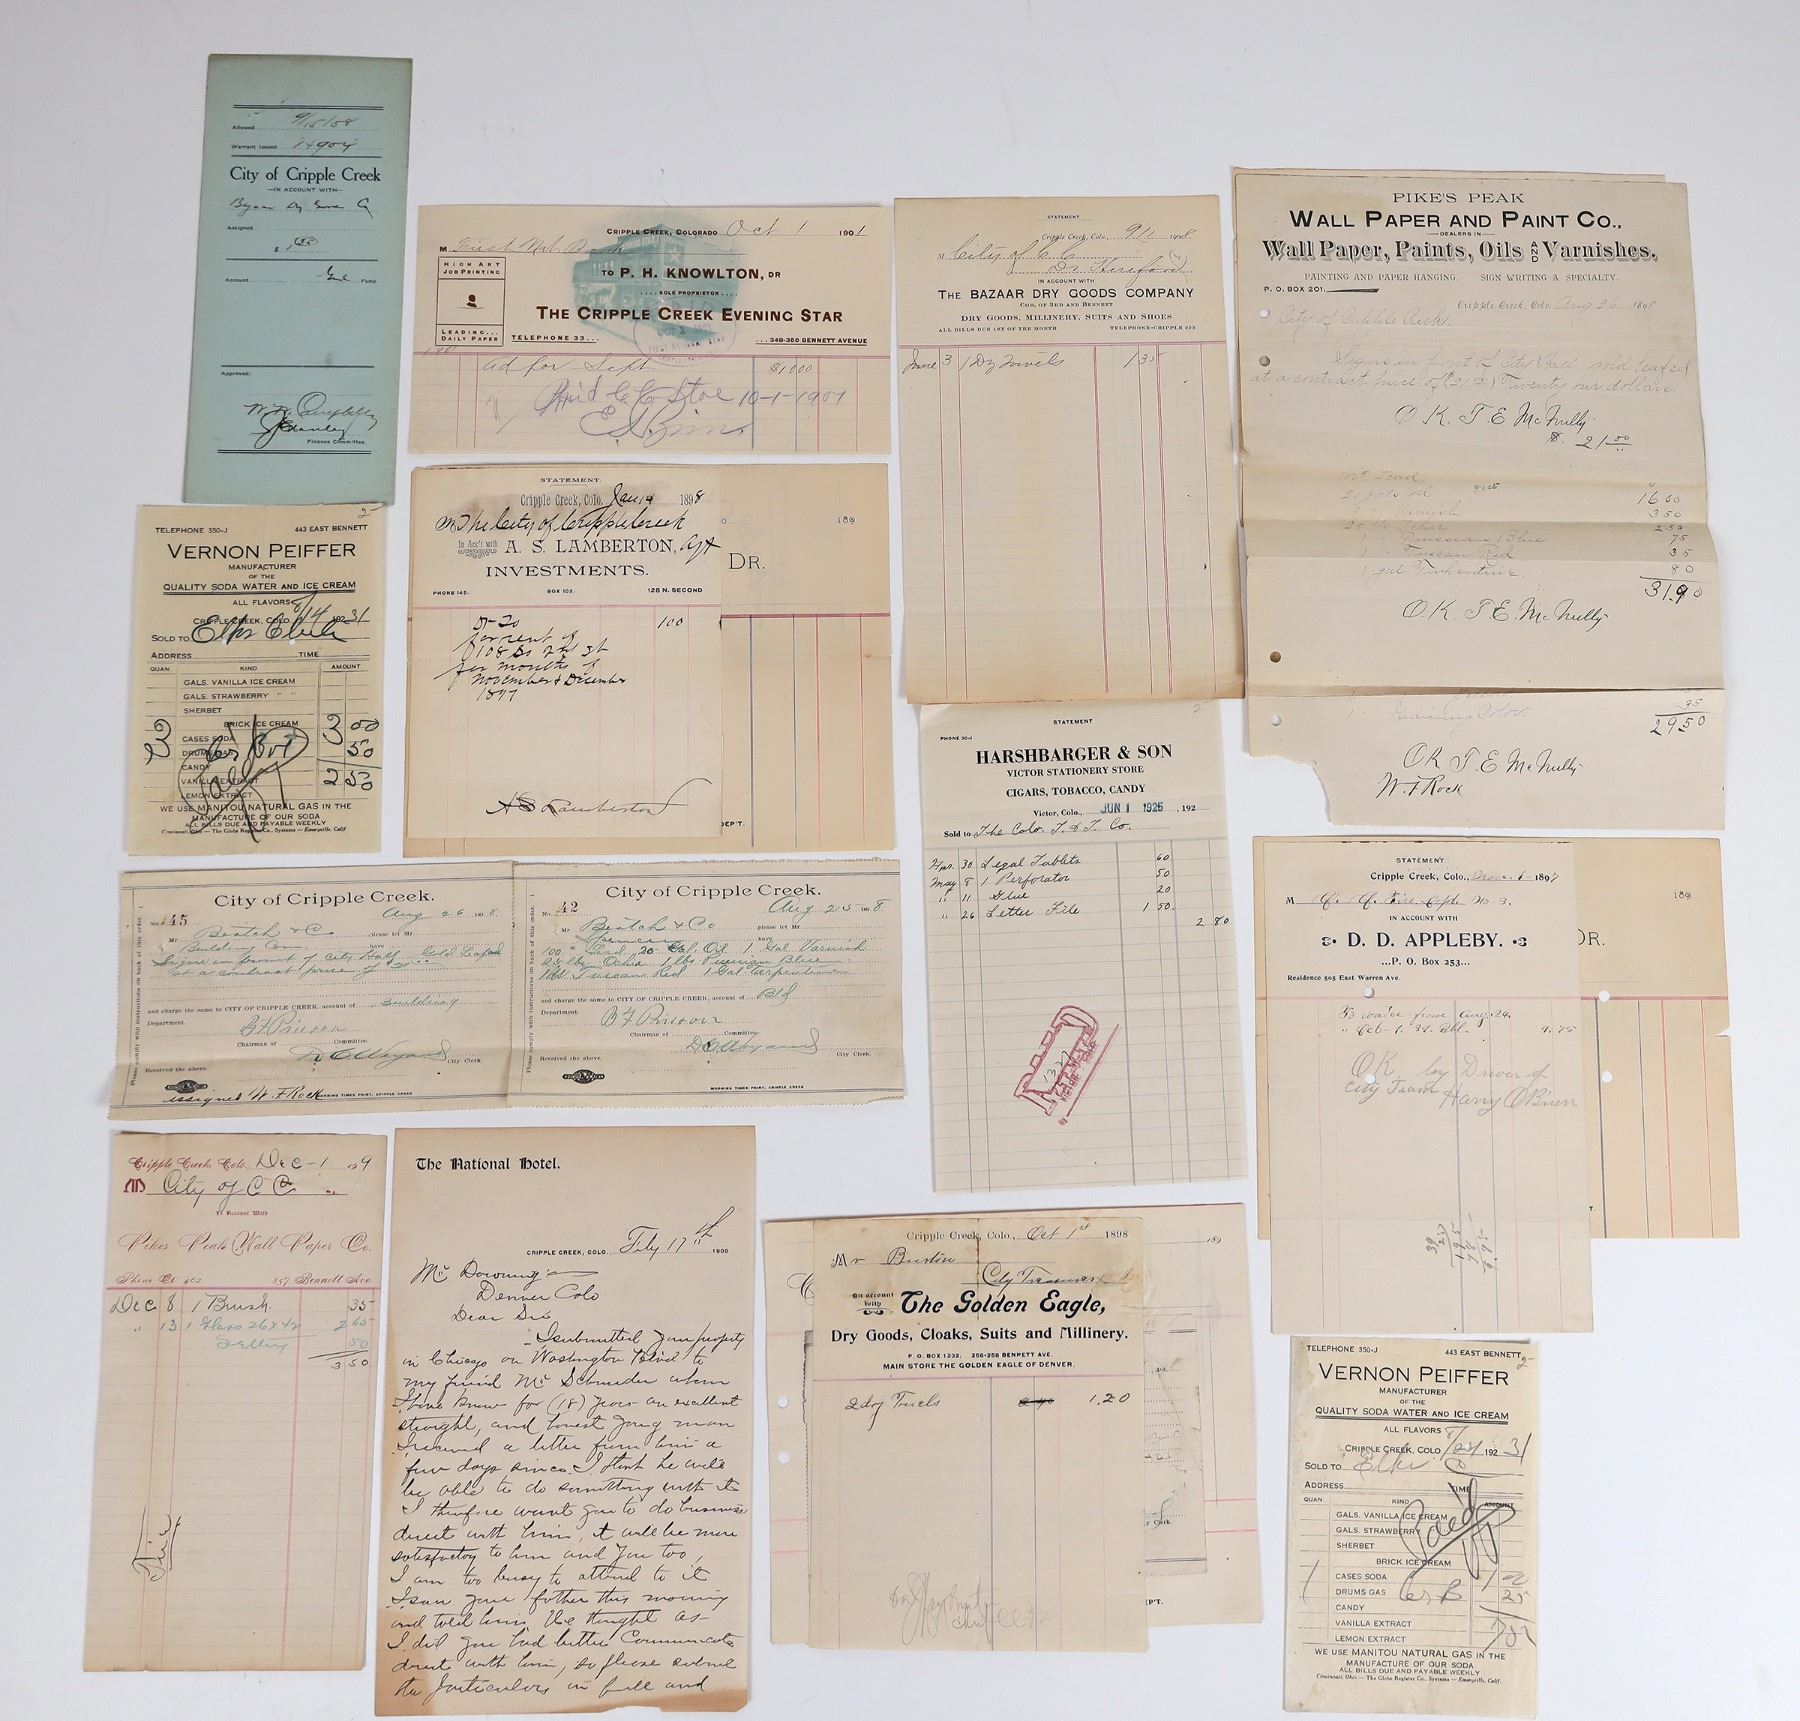 Allowed 9/15/08
Warrant Issued 14904
City of Cripple Creek
—IN ACCOUNT WITH—
Assigned
$ 1 35
Account Fund.
Approved:
Finance Committee.
CRIPPLE CREEK, COLORADO Oct 1 1901
M First Nat Bank
HIGH ART
JOB PRINTING
LEADING...
DAILY PAPER
TO P. H. KNOWLTON, DR
....SOLE PROPRIETOR....
THE CRIPPLE CREEK EVENING STAR
TELEPHONE 33...
...348-350 BENNETT AVENUE
ad for Sept $10 00
10-1-1901
STATEMENT
Cripple Creek, Colo., 9/1 1908
M City of C C
IN ACCOUNT WITH
THE BAZAAR DRY GOODS COMPANY
COR. OF 3RD AND BENNETT
DRY GOODS, MILLINERY, SUITS AND SHOES
ALL BILLS DUE 1ST OF THE MONTH TELEPHONE-CRIPPLE 223
June 3 1 Dz Towels 1 35
PIKE'S PEAK
WALL PAPER AND PAINT CO.,
—DEALERS IN—
Wall Paper, Paints, Oils AND Varnishes.
PAINTING AND PAPER HANGING. SIGN WRITING A SPECIALTY.
P. O. BOX 201.
Cripple Creek, Colo. Aug 26 1898
City of Cripple Creek.
Signs in front of City Hall gold leafed
at a contract price of (21 00) Twenty one dollars
O K. T. E McNully.
$. 21 00
16 00
3 50
2 50
1 " Prussian Blue 75
1 " Tuscan Red 35
1 gal Turpentine. 80
31.90
O.K. T. E. McNully
Graining Color 75
29 50
OK T. E McNully
W. F Rock
TELEPHONE 350-J 443 EAST BENNETT
VERNON PEIFFER
MANUFACTURER
OF THE
QUALITY SODA WATER AND ICE CREAM
ALL FLAVORS
CRIPPLE CREEK, COLO 8/14 1931
SOLD TO Elks Club
ADDRESS TIME
QUAN. KIND AMOUNT
GALS. VANILLA ICE CREAM
GALS. STRAWBERRY " "
SHERBET
BRICK ICE CREAM
3 CASES SODA 3 00
DRUMS GAS 50
CANDY
VANILLA EXTRACT 2 50
LEMON EXTRACT
WE USE MANITOU NATURAL GAS IN THE
MANUFACTURE OF OUR SODA
ALL BILLS DUE AND PAYABLE WEEKLY
Cincinnati, Ohio — The Globe Register Co., Systems — Emeryville, Calif.
STATEMENT.
Cripple Creek, Colo. Jan 14 1898
M The City of Cripple Creek
In Acc't with A. S. LAMBERTON, Agt
INVESTMENTS.
PHONE 145. BOX 102. 128 N. SECOND
for rent of 100
108 So 2nd st
for months of
November & December
1897
A S Lamberton
189
DR.
DEP'T.
STATEMENT
PHONE 30-J
HARSHBARGER & SON
VICTOR STATIONERY STORE
CIGARS, TOBACCO, CANDY
Victor, Colo., JUN 1 1926, 192
Sold to The Colo. T. & T. Co.
Apr. 30 Legal Tablets 60
May 8 1 Perforator 50
" 11 Glue 20
" 26 Letter File 1 50
2 80
City of Cripple Creek.
No. 145 Aug 26 1898
Mr. Beatch & Co please let Mr.
Building Com. have
Signs in front of City Hall Gold Leafed
at a contract price of 21 00
and charge the same to CITY OF CRIPPLE CREEK, account of Building
Department.
Chairman of Committee.
City Clerk.
Received the above.
assigned W. F Rock
MORNING TIMES PRINT, CRIPPLE CREEK
City of Cripple Creek.
No. 42 Aug 25 1898
Mr. Beatch & Co please let Mr.
have
100 # Lead, 20 Gal. Oil 1 Gal Varnish
25 lbs Ochre 1 lbs Prussian Blue
1 lbs Tuscan Red 1 Gal Turpentine
and charge the same to CITY OF CRIPPLE CREEK, account of Bld
Department.
Chairman of Committee.
City Clerk.
Received the above.
MORNING TIMES PRINT, CRIPPLE CREEK
STATEMENT.
Cripple Creek, Colo., 1897
M C. C. Fire Dept. No. 3.
IN ACCOUNT WITH
D. D. APPLEBY.
...P. O. BOX 253...
Residence 505 East Warren Ave.
from Aug. 24.
9.75
OK by Driver of
City Team Harry O'Brien
189
DR.
Cripple Creek, Colo., Dec-1 1909
M City of C C
In Account With
Pikes Peak Wall Paper Co.
Phone CC 402 357 Bennett Ave
Dec 8 1 Brush. 35
" 13 1 Glass 26x42 2 65
Setting 50
3 50
Fire
The National Hotel.
CRIPPLE CREEK, COLO., Feby 17th 1900
Mr Downing
Denver Colo
Dear Sir
I submitted your property
in Chicago on Washington Blvd to
my friend Mr Schneider whom
I have known for (18) years an excellent
straight, and honest young man
I received a letter from him a
few days since. I think he will
be able to do something with it
I therefore want you to do business
direct with him, it will be more
satisfactory to him and you too,
I am too busy to attend to it
I saw your father this morning
and told him. He thought as
I did you had better Communicate
direct with him, so please submit
the particulars in full and
Cripple Creek, Colo., Oct 1st 1898
Mr
City Treasurer
In account with The Golden Eagle,
Dry Goods, Cloaks, Suits and Millinery.
P. O. BOX 1232. 256-258 BENNETT AVE.
MAIN STORE THE GOLDEN EAGLE OF DENVER.
2 doz 1.20
189
TELEPHONE 350-J 443 EAST BENNETT
VERNON PEIFFER
MANUFACTURER
OF THE
QUALITY SODA WATER AND ICE CREAM
ALL FLAVORS
CRIPPLE CREEK, COLO 8/24 1931
SOLD TO Elks C
ADDRESS TIME
QUAN. KIND AMOUNT
GALS. VANILLA ICE CREAM
GALS. STRAWBERRY
SHERBET
BRICK ICE CREAM
1 CASES SODA 1 00
DRUMS GAS 25
CANDY
VANILLA EXTRACT
LEMON EXTRACT
Paid
WE USE MANITOU NATURAL GAS IN THE
MANUFACTURE OF OUR SODA
ALL BILLS DUE AND PAYABLE WEEKLY
Cincinnati, Ohio — The Globe Register Co., Systems — Emeryville, Calif.